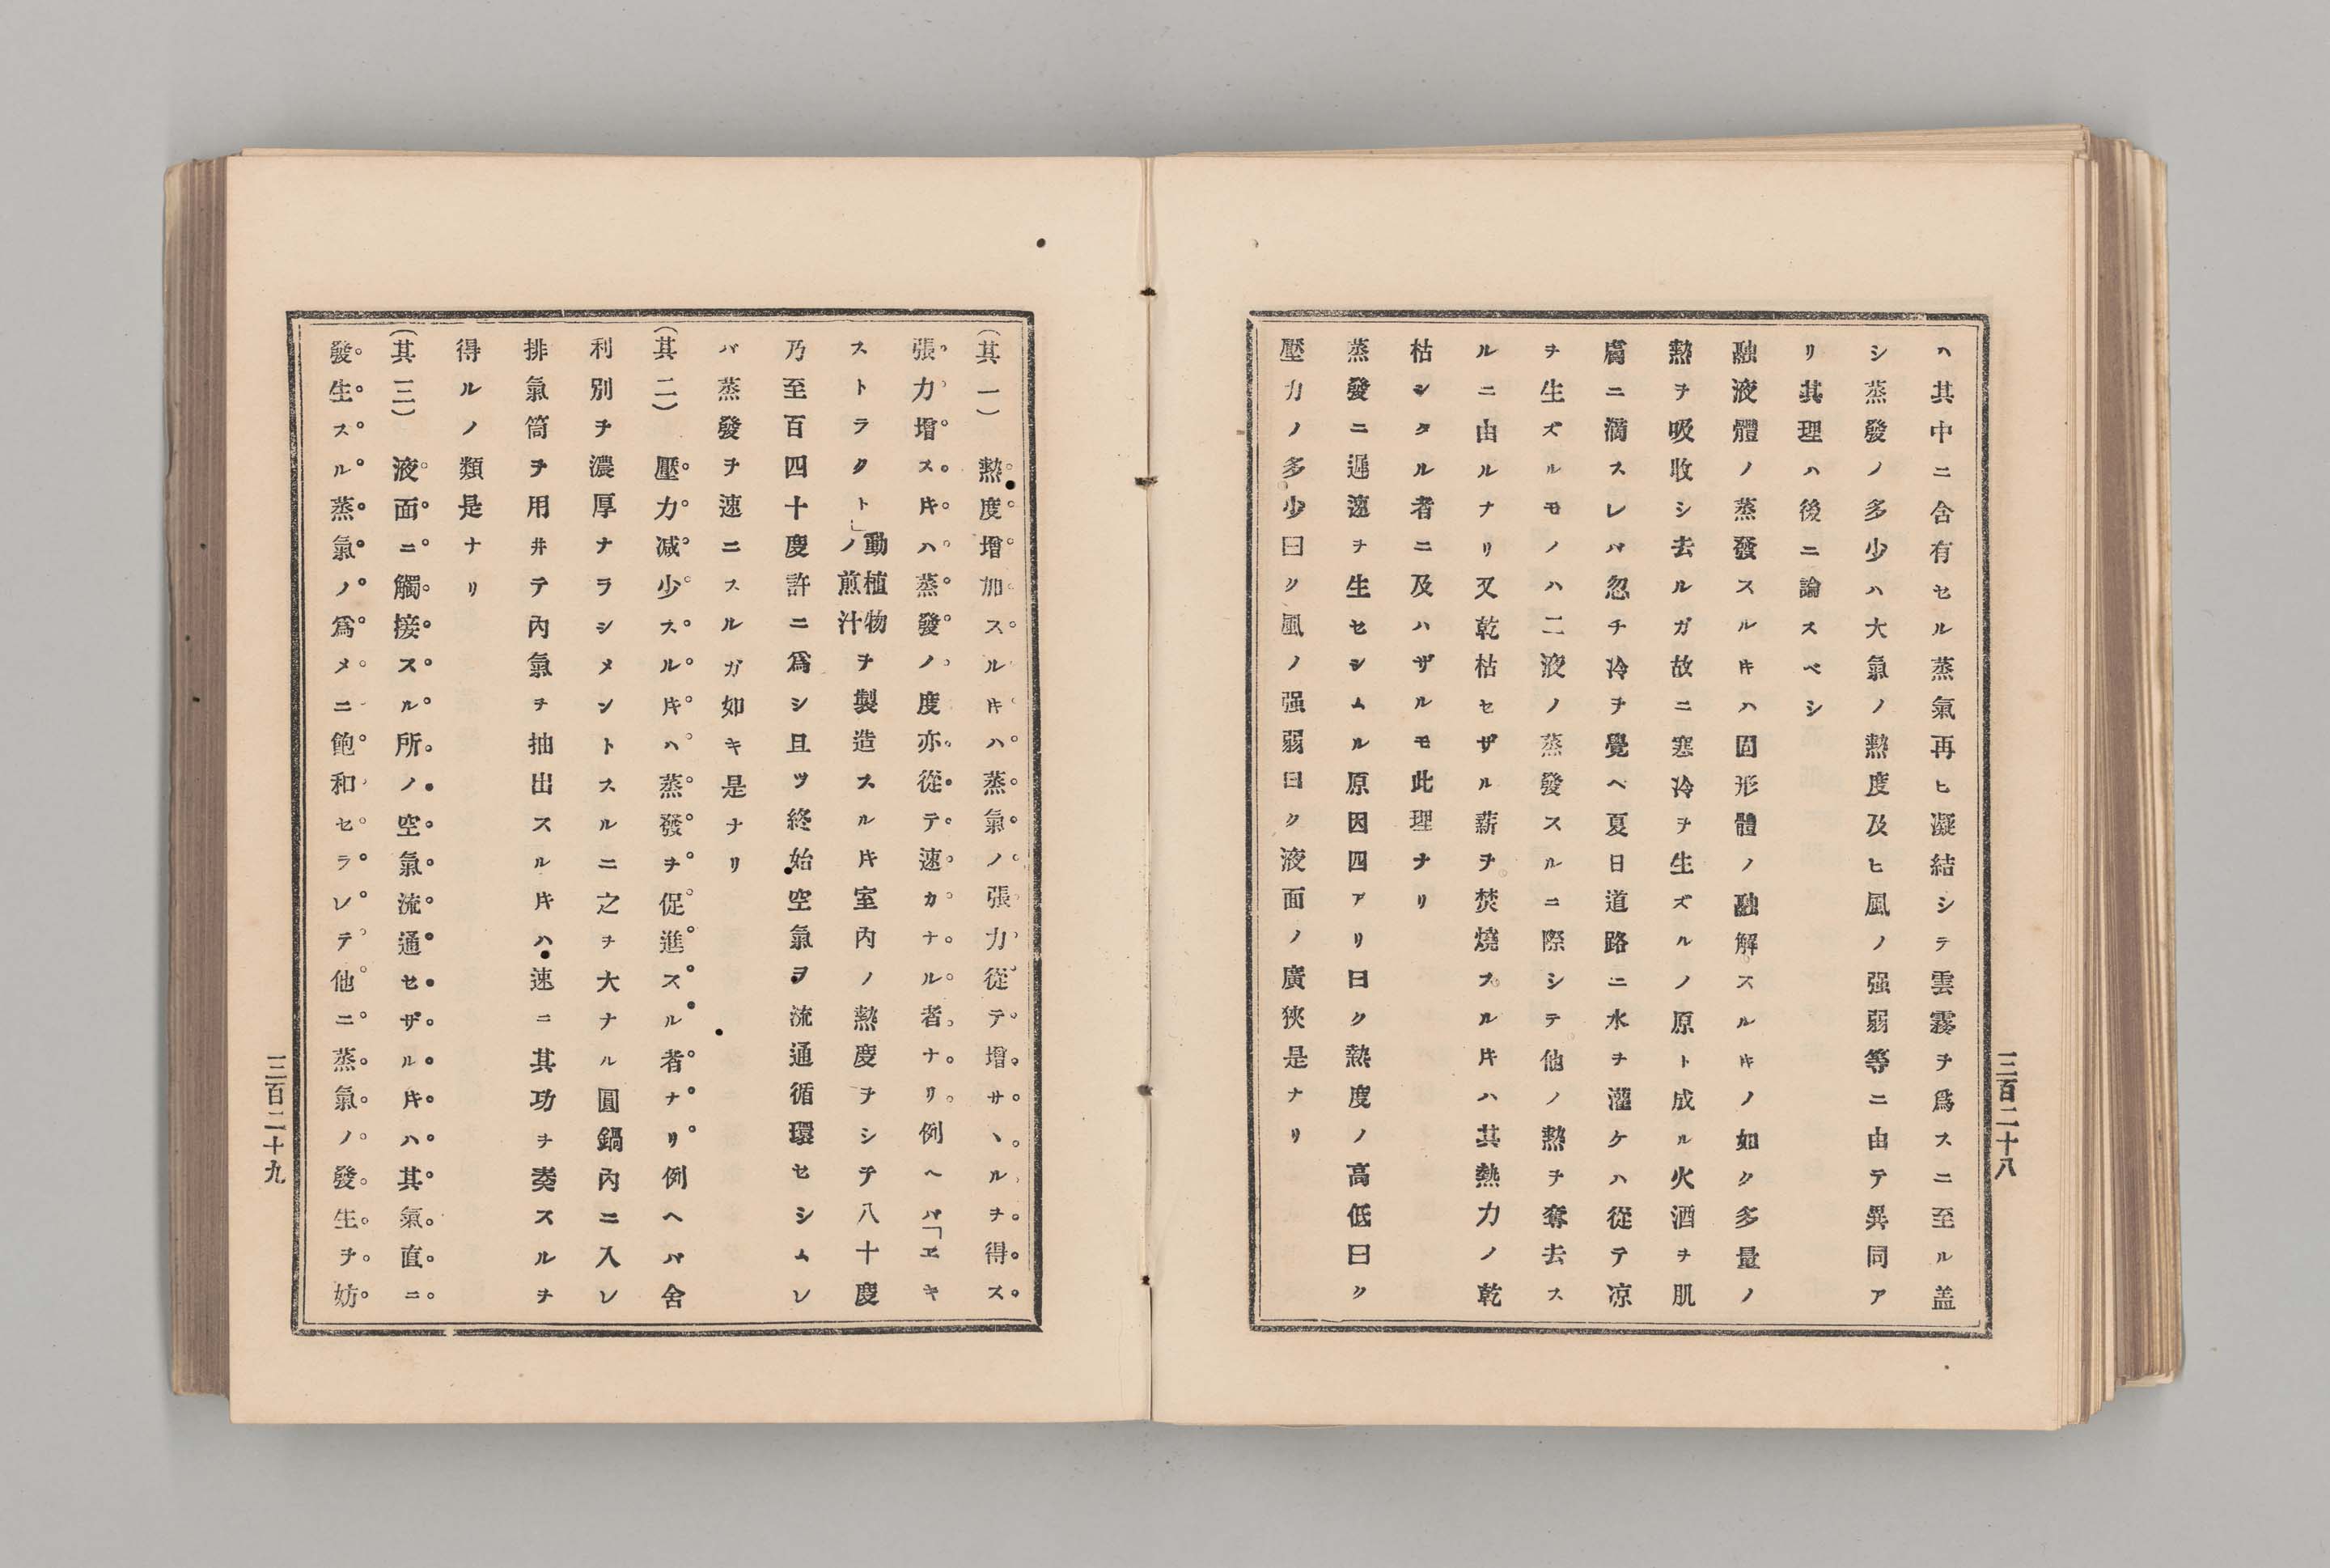 ハ其中ニ含有セル蒸氣再ヒ凝結シテ雲霧ヲ爲スニ至ル盖
シ蒸發ノ多少ハ大氣ノ熱度及ヒ風ノ强弱等ニ由テ異同ア
リ其理ハ後ニ論スベシ
融液體ノ蒸發スルキハ固形體ノ融解スルキノ如ク多量ノ
熱ヲ吸收シ去ルガ故ニ寒冷ヲ生ズルノ原ト成ル火酒ヲ肌
膚ニ滴スレバ忽チ冷ヲ覺ベ夏日道路ニ水ヲ灌ケハ從テ凉
ヲ生ズルモノハ二液ノ蒸發スルニ際シテ他ノ熱ヲ奪去ス
ルニ由ルナリ又乾枯セザル薪ヲ焚燒スル𪜈ハ其熱力ノ乾
枯シタル者ニ及ハザルモ此理ナリ
蒸發ニ遲速ヲ生セシムル原因四アリ曰ク熱度ノ高低曰ク
壓力ノ多少曰ク風ノ强弱曰ク液面ノ廣狹是ナリ
三百二十八
(其一) 熱度增加スルキハ蒸氣ノ張力從テ增サヽルヲ得ス
張力增ス𪜈ハ蒸發ノ度亦從テ速カナル者ナリ例ヘバ「ヱキ
ストラクト」動植物ノ煎汁ヲ製造スル𪜈室內ノ熱度ヲシテ八十度
乃至百四十度許ニ爲シ且ツ終始空氣ヲ流通循環セシムレ
バ蒸發ヲ速ニスルガ如キ是ナリ
(其二) 壓力减少スル𪜈ハ蒸發ヲ促進スル者ナリ例ヘバ舍
利別ヲ濃厚ナラシメントスルニ之ヲ大ナル圓鍋內ニ入レ
排氣筒ヲ用井テ內氣ヲ抽出スル𪜈ハ速ニ其功ヲ奏スルヲ
得ルノ類是ナリ
(其三) 液面ニ觸接スル所ノ空氣流通セザル𪜈ハ其氣直ニ
發生スル蒸氣ノ爲メニ飽和セラレテ他ニ蒸氣ノ發生ヲ妨
三百二十九